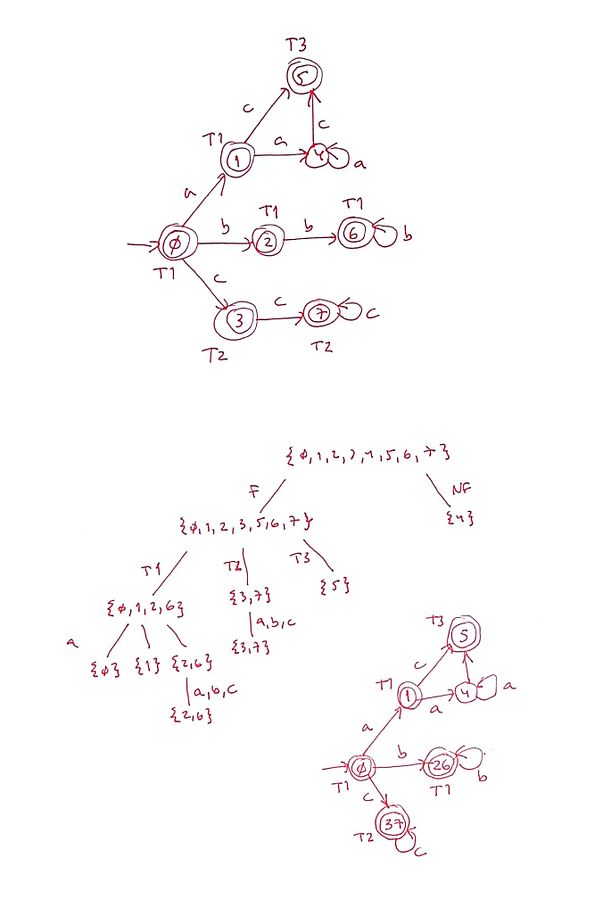 T3
5
c
c
T1
a
1
4
a
a
b
T1
b
T1
ϕ
2
6
b
T1
c
c
3
7
c
T2
T2
{ϕ,1,2,3,4,5,6,7}
F
NF
{ϕ,1,2,3,5,6,7}
{4}
T1
T2
T3
{ϕ,1,2,6}
{3,7}
{5}
a
a,b,c
{ϕ} {1} {2,6}
{3,7}
a,b,c
{2,6}
T3
5
c
T1
1
4
a
a
a
b
ϕ
26
T1
T1
b
c
37
T2
c